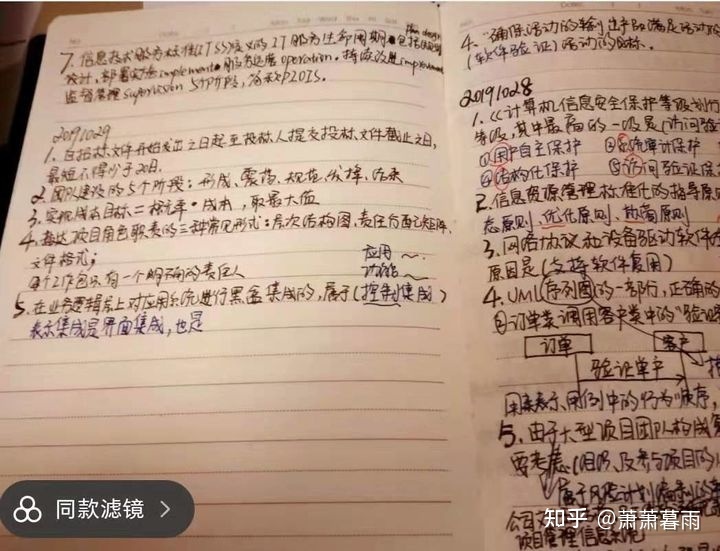 plan design
7. 信息技术服务标准(ITSS)定义的IT服务生命周期·包括规划
设计、部署实施implement·服务运营operation·持续改进improvement
监督管理supervision 5个阶段,简称PIOIS.
20191029
1. 自招标文件开始发出之日起至投标人提交投标文件截止之日,
最短不得少于20日.
2. 团队建设的5个阶段:形成、震荡、规范、发挥、结束
3. 实现成本目标=概率·成本,取最大值
4. 描述项目角色职责的三种常见形式:层次结构图、责任分配矩阵、
文件格式;
每个工作包只有一个明确的责任人
应用~
功能~
5. 在业务逻辑层上对应用系统进行黑盒集成的,属于(控制集成)
表示集成是界面集成,也是
4. "确保活动的输出产品满足活动的
(软件验证)活动的目标.
20191028
1.《计算机信息安全保护等级划分
等级,其中最高的一级是(访问验证
①用户自主保护 ②系统审计保护
④结构化保护 ⑤访问验证保
2. 信息资源管理标准化的指导原
态原则 优化原则
3. 网络协议和设备驱动软件
原因是(支持软件复用)
4. UML序列图的一部分,正确的
②订单类调用客户类中的"验证
订单
客户
验证单户
用来表示用例中的行为"顺序,
5. 由于大型项目团队构成
要考虑(组织及参与项目的
属于风险计划编制
公司
项目管理信息系统
同款滤镜 >
知乎 @萧萧暮雨